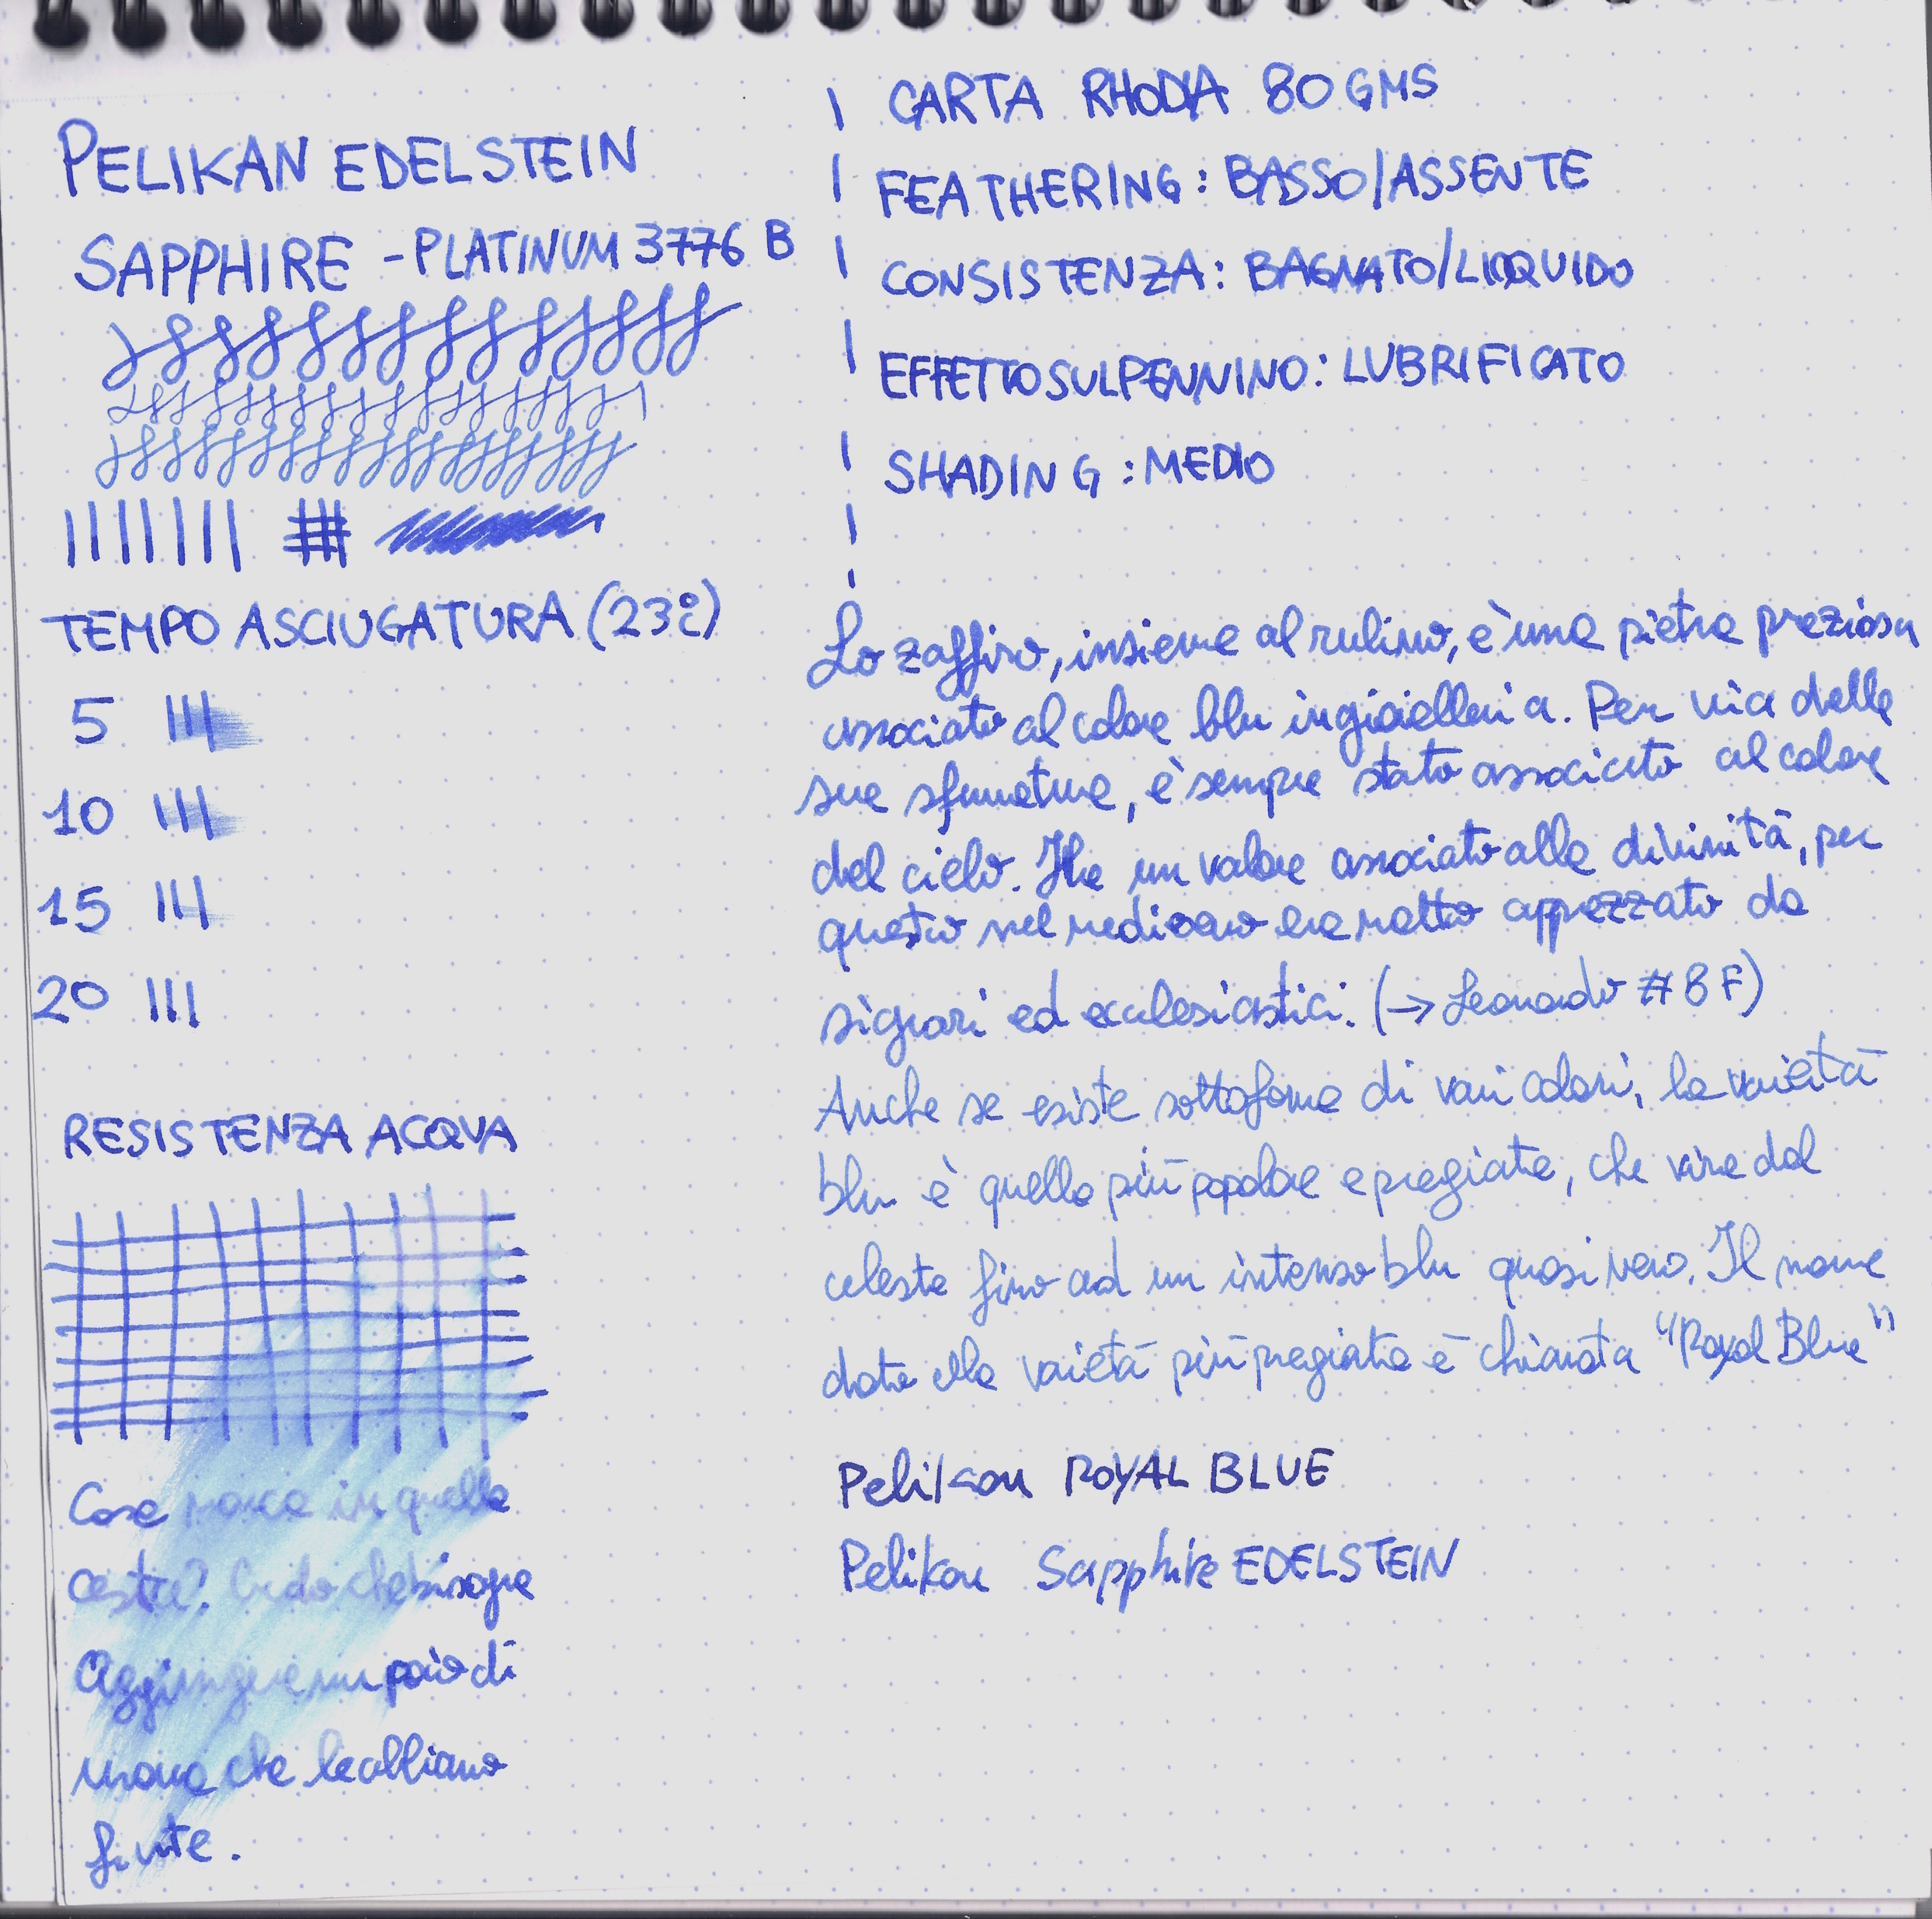 PELIKAN EDELSTEIN
SAPPHIRE - PLATINUM 3776 B
TEMPO ASCIUGATURA (23°)
5
10
15
20
RESISTENZA ACQUA
Cosa manca in quella
cesta? Credo che bisogna
Aggiungere un paio di
uova che le abbiamo
finite.
CARTA RHODIA 80 GMS
FEATHERING: BASSO/ASSENTE
CONSISTENZA: BAGNATO/LIQUIDO
EFFETTO SUL PENNINO: LUBRIFICATO
SHADING: MEDIO
Lo zaffiro, insieme al rubino, è una pietra preziosa
associato al colore blu in gioielleria. Per via delle
sue sfumature, è sempre stato associato al colore
del cielo. Ha un valore associato alla divinità, per
questo nel medioevo era molto apprezzato da
signori ed ecclesiastici. (→ Leonardo #8 F)
Anche se esiste sottoforma di vari colori, la varietà
blu è quella più popolare e pregiata, che vira dal
celeste fino ad un intenso blu quasi nero. Il nome
dato alla varietà più pregiata è chiamata "Royal Blue"
Pelikan ROYAL BLUE
Pelikan Sapphire EDELSTEIN